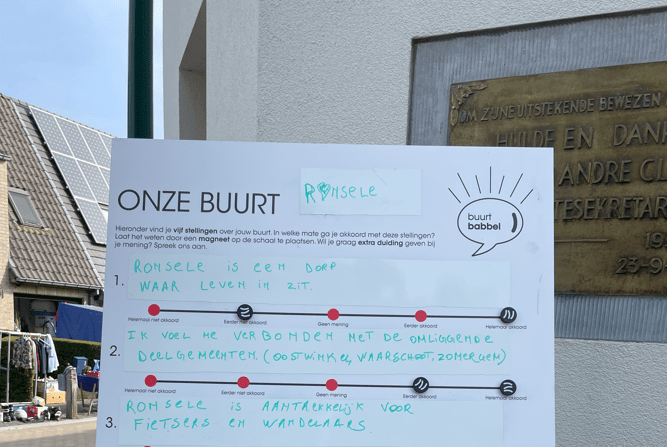 ONZE BUURT
RONSELE
buurt
babbel
Hieronder vind je vijf stellingen over jouw buurt. In welke mate ga je akkoord met deze stellingen?
Laat het weten door een magneet op de schaal te plaatsen. Wil je graag extra duiding geven bij
je mening? Spreek ons aan.
1.
RONSELE IS EEN DORP
WAAR LEVEN IN ZIT.
Helemaal niet akkoord
Eerder niet akkoord
Geen mening
Eerder akkoord
Helemaal akkoord
2.
IK VOEL ME VERBONDEN MET DE OMLIGGENDE
DEELGEMEENTEN. (OOSTWINKEL, WAARSCHOOT, ZOMERGEM)
Helemaal niet akkoord
Eerder niet akkoord
Geen mening
Eerder akkoord
Helemaal akkoord
3.
RONSELE IS AANTREKKELIJK VOOR
FIETSERS EN WANDELAARS.
OM ZIJNE UITSTEKENDE BEWEZEN
HULDE EN DANK
ANDRE CL
23-9